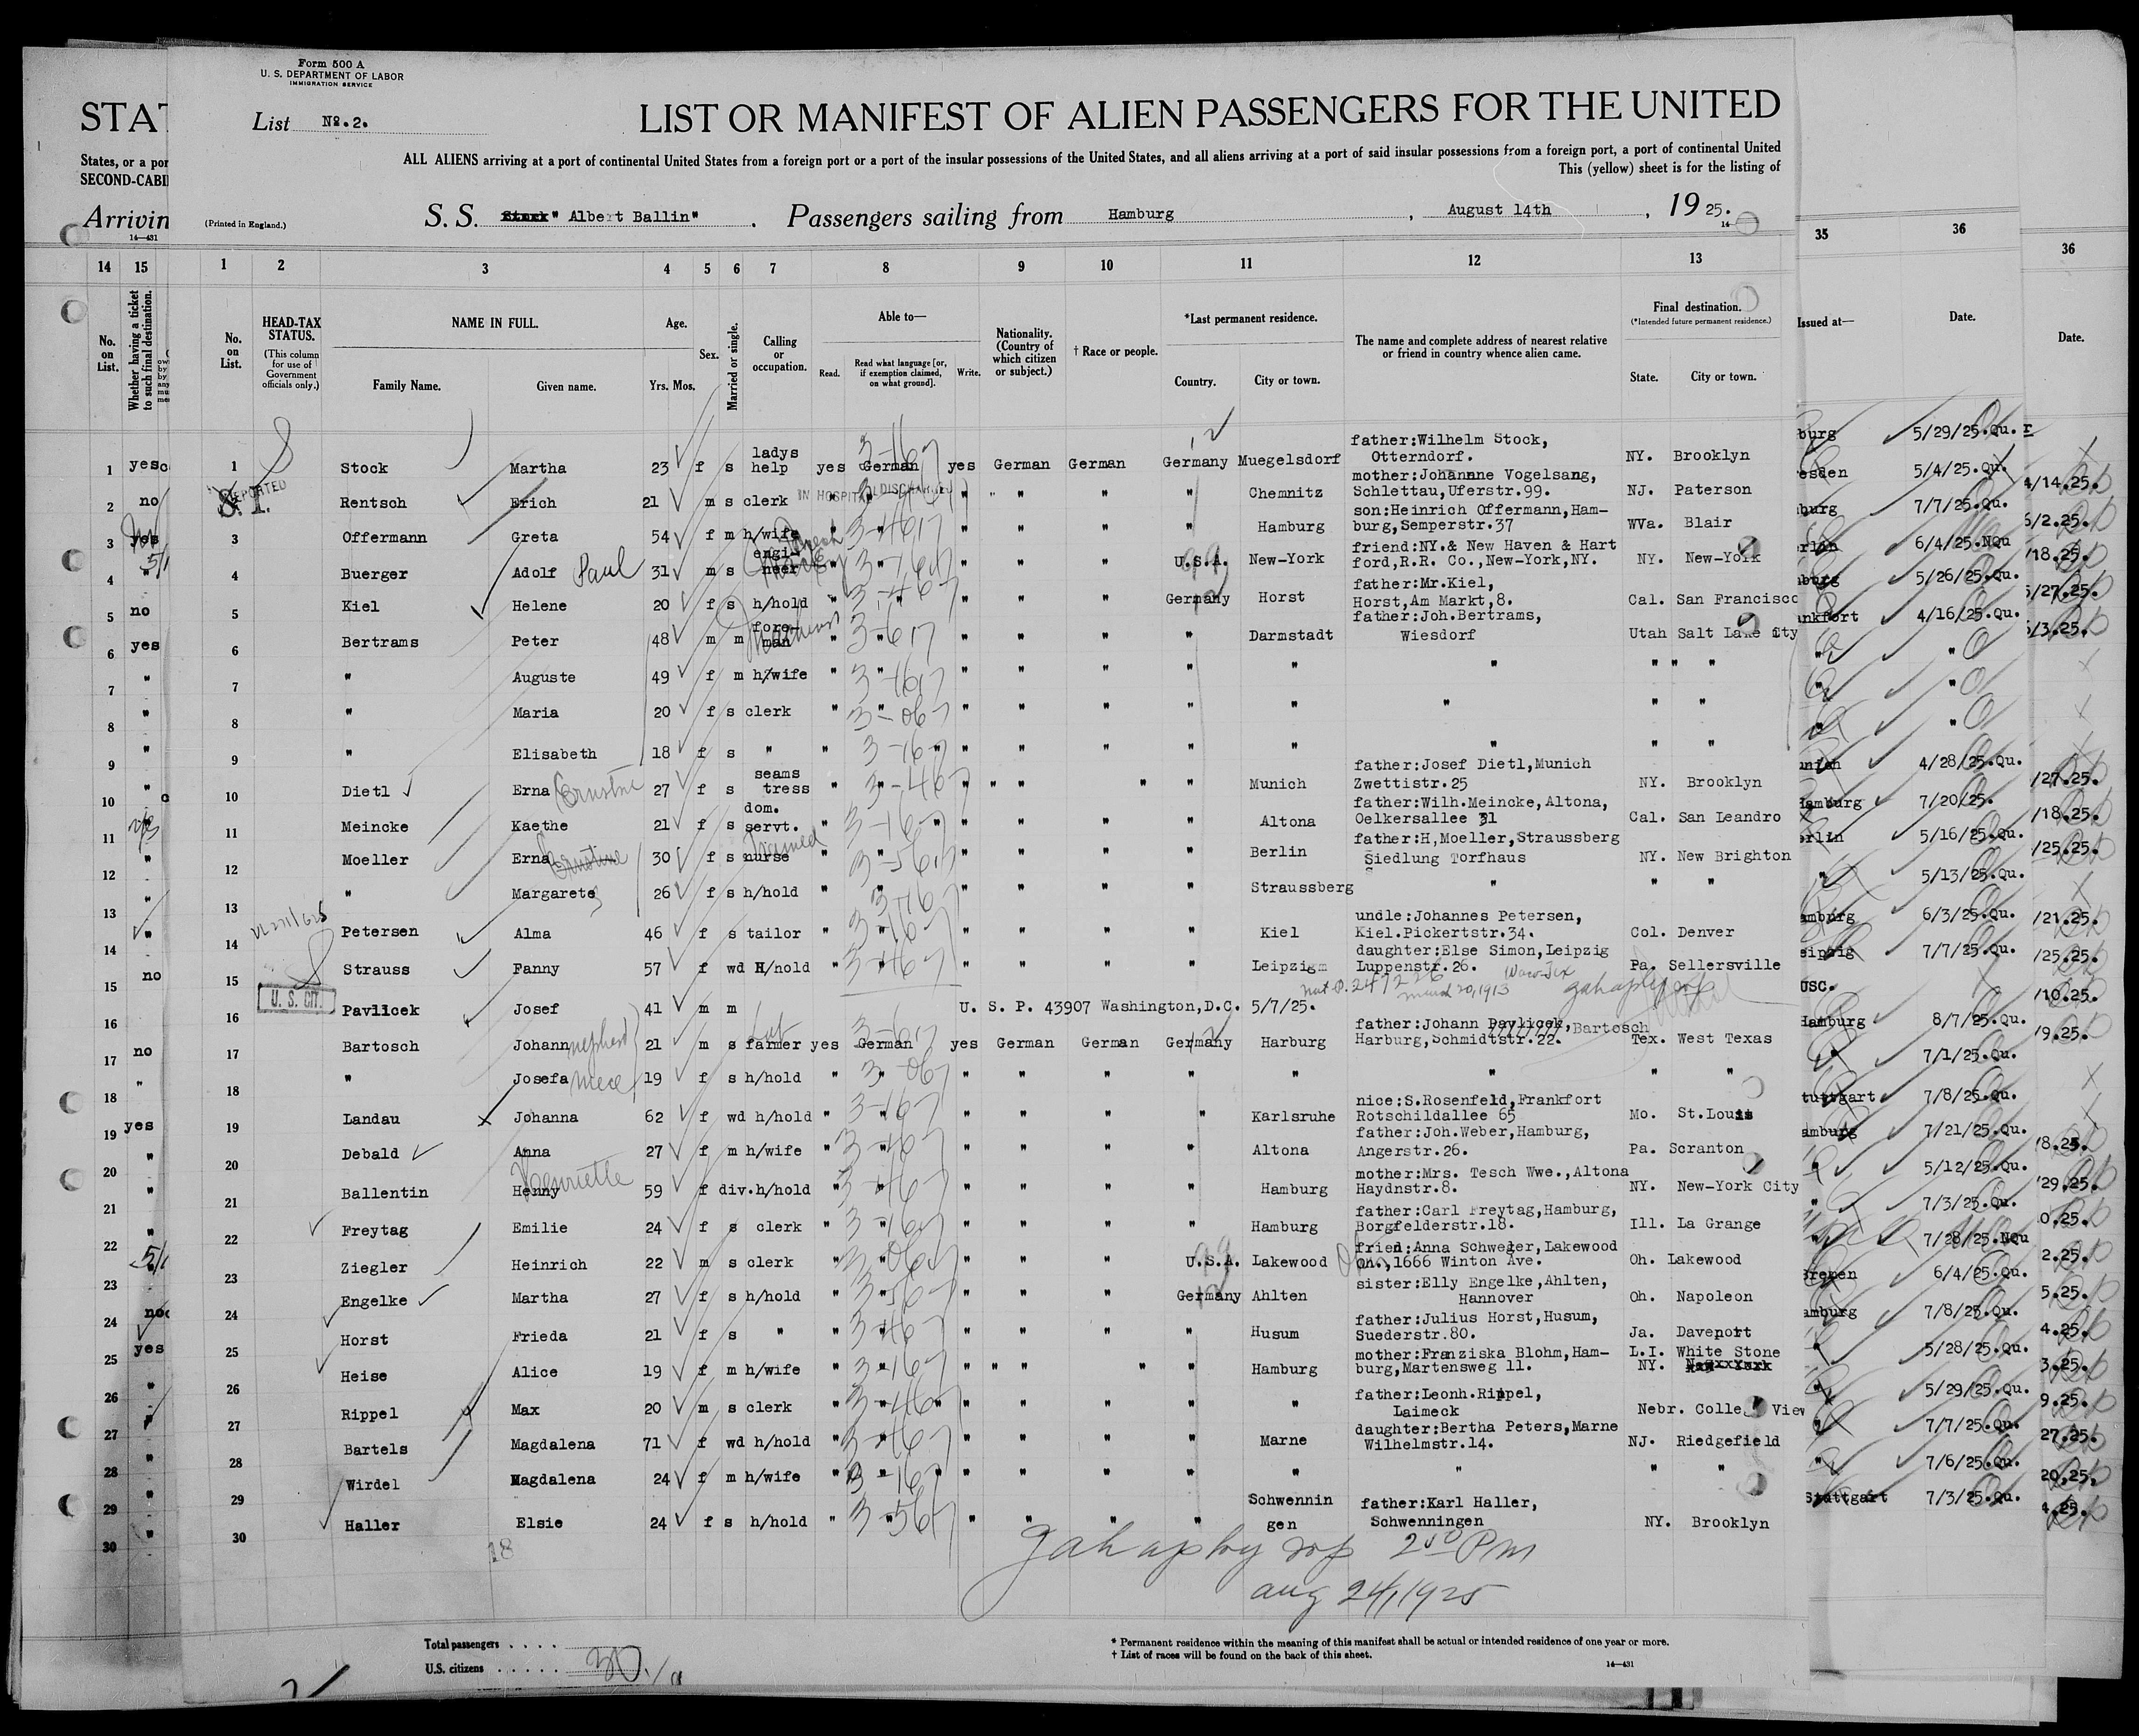 Form 500 A
U. S. DEPARTMENT OF LABOR
IMMIGRATION SERVICE
List No. 2.
LIST OR MANIFEST OF ALIEN PASSENGERS FOR THE UNITED
ALL ALIENS arriving at a port of continental United States from a foreign port or a port of the insular possessions of the United States, and all aliens arriving at a port of said insular possessions from a foreign port, a port of continental United
This (yellow) sheet is for the listing of
STAT
States, or a por
SECOND-CABI
Arrivin
14—431
(Printed in England.)
S. S. " Albert Ballin" . Passengers sailing from Hamburg , August 14th , 19 25.
14 15 1 2 3 4 5 6 7 8 9 10 11 12 13 35 36 36
No. on List.
Whether having a ticket to such final destination.
No. on List.
HEAD-TAX STATUS.
(This column for use of Government officials only.)
NAME IN FULL.
Family Name. Given name.
Age.
Yrs. Mos.
Sex.
Married or single.
Calling or occupation.
Able to—
Read. Read what language [or, if exemption claimed, on what ground]. Write.
Nationality. (Country of which citizen or subject.)
† Race or people.
*Last permanent residence.
Country. City or town.
The name and complete address of nearest relative or friend in country whence alien came.
Final destination.
(*Intended future permanent residence.)
State. City or town.
Issued at— Date. Date.
1 yes 1 Stock Martha 23 f s ladys help yes German yes German German Germany Muegelsdorf father:Wilhelm Stock, Otterndorf. NY. Brooklyn 5/29/25.Qu.
2 no 2 Rentsch Erich 21 m s clerk IN HOSPITAL DISCHARGED " " " " Chemnitz mother:Johanne Vogelsang, Schlettau,Uferstr.99. NJ. Paterson 5/4/25.Qu. 4/14.25.
3 yes 3 Offermann Greta 54 f m h/wife " " " " " " Hamburg son:Heinrich Offermann,Hamburg,Semperstr.37 WVa. Blair 7/7/25.Qu. 6/2.25.
4 " 4 Buerger Adolf Paul 31 m s engineer " " " " " U.S.A. New-York friend:NY.& New Haven & Hartford,R.R. Co.,New-York,NY. NY. New-York 6/4/25.NQu /18.25.
5 no 5 Kiel Helene 20 f s h/hold " " " " " Germany Horst father:Mr.Kiel, Horst,Am Markt,8. Cal. San Francisco 5/26/25.Qu. /27.25.
6 yes 6 Bertrams Peter 48 m m foreman " " " " " " Darmstadt father:Joh.Bertrams, Wiesdorf Utah Salt Lake City 4/16/25.Qu. /3.25.
7 " 7 " Auguste 49 f m h/wife " " " " " " " " " " "
8 " 8 " Maria 20 f s clerk " " " " " " " " " "
9 " 9 " Elisabeth 18 f s " " " " " " " " " " "
10 " 10 Dietl Erna Ernstine 27 f s seamstress " " " " " " Munich father:Josef Dietl,Munich Zwettistr.25 NY. Brooklyn 4/28/25.Qu. /27.25.
11 yes 11 Meincke Kaethe 21 f s dom. servt. " " " " " " Altona father:Wilh.Meincke,Altona, Oelkersallee 31 Cal. San Leandro Hamburg 7/20/25. /18.25.
12 " 12 Moeller Erna 30 f s nurse trained " " " " " " Berlin father:H,Moeller,Straussberg Siedlung Torfhaus NY. New Brighton 5/16/25.Qu. /25.25.
13 " 13 " Margarete 26 f s h/hold " " " " " " Straussberg " " " 5/13/25.Qu.
14 " 14 Petersen Alma 46 f s tailor " " " " " " Kiel undle:Johannes Petersen, Kiel.Pickertstr.34. Col. Denver 6/3/25.Qu. /21.25.
15 no 15 Strauss Fanny 57 f wd H/hold " " " " " " Leipzig daughter:Else Simon,Leipzig Luppenstr.26. Pa. Sellersville 7/7/25.Qu. /25.25.
16 U. S. CIT. 16 Pavlicek Josef 41 m m U. S. P. 43907 Washington,D.C. 5/7/25. USC. /10.25.
17 no 17 Bartosch Johann nephew 21 m s farmer yes German yes German German Germany Harburg father:Johann Pavlicek,Bartosch Harburg,Schmidtstr.22. Tex. West Texas Hamburg 8/7/25.Qu. /9.25.
18 " 18 " Josefa niece 19 f s h/hold " " " " " " " " " " 7/1/25.Qu.
19 yes 19 Landau Johanna 62 f wd h/hold " " " " " " Karlsruhe nice:S.Rosenfeld,Frankfort Rotschildallee 65 Mo. St.Louis 7/8/25.Qu.
20 " 20 Debald Anna 27 f m h/wife " " " " " " Altona father:Joh.Weber,Hamburg, Angerstr.26. Pa. Scranton 7/21/25.Qu. 8.25.
21 " 21 Ballentin Henny Henriette 59 f div. h/hold " " " " " " Hamburg mother:Mrs. Tesch Wwe.,Altona Haydnstr.8. NY. New-York City 5/12/25.Qu. 29.25.
22 " 22 Freytag Emilie 24 f s clerk " " " " " " Hamburg father:Carl Freytag,Hamburg, Borgfelderstr.18. Ill. La Grange 7/3/25.Qu. 0.25.
23 23 Ziegler Heinrich 22 m s clerk " " " " " U.S.A. Lakewood fried:Anna Schweger,Lakewood Oh.,1666 Winton Ave. Oh. Lakewood 7/28/25.NQu 2.25.
24 no 24 Engelke Martha 27 f s h/hold " " " " " Germany Ahlten sister:Elly Engelke,Ahlten, Hannover Oh. Napoleon Bremen 6/4/25.Qu. 5.25.
25 yes 25 Horst Frieda 21 f s " " " " " " " Husum father:Julius Horst,Husum, Suederstr.80. Ja. Davenport 7/8/25.Qu. 4.25.
26 " 26 Heise Alice 19 f m h/wife " " " " " " Hamburg mother:Franziska Blohm,Hamburg,Martensweg 11. L.I. White Stone NY. 5/28/25.Qu. 3.25.
27 " 27 Rippel Max 20 m s clerk " " " " " " " father:Leonh.Rippel, Laimeck Nebr. College View 5/29/25.Qu. 9.25.
28 " 28 Bartels Magdalena 71 f wd h/hold " " " " " " Marne daughter:Bertha Peters,Marne Wilhelmstr.14. NJ. Riedgefield 7/7/25.Qu. 27.25.
29 " 29 Wirdel Magdalena 24 f m h/wife " " " " " " " " " " 7/6/25.Qu. 20.25.
30 " 30 Haller Elsie 24 f s h/hold " " " " " " Schwenningen father:Karl Haller, Schwenningen NY. Brooklyn Stuttgart 7/3/25.Qu. 4.25.
18
2 50 Pm
aug 24, 1925
Total passengers . . . .
U.S. citizens . . . . . 30
* Permanent residence within the meaning of this manifest shall be actual or intended residence of one year or more.
† List of races will be found on the back of this sheet.
14—431